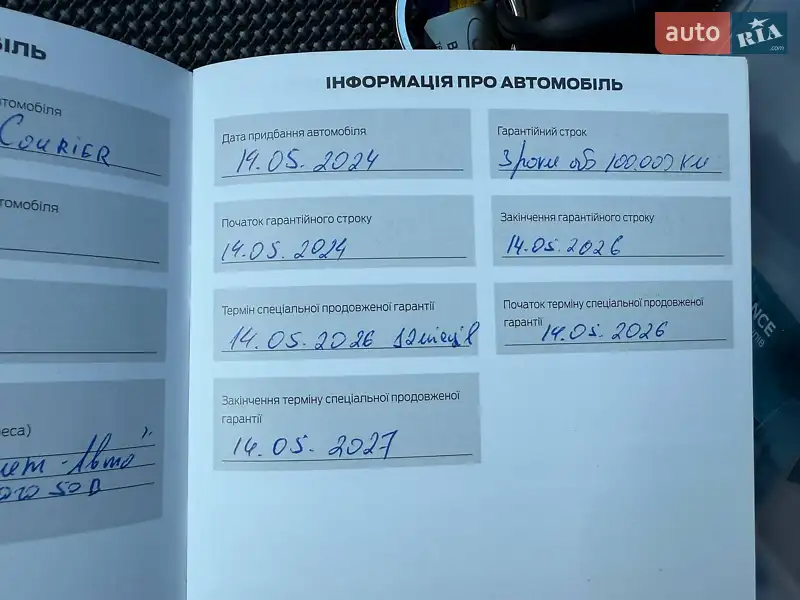 auto RIA
.com
ІЛЬ
томобіля
COURIER
томобіля
еса)
50В
ІНФОРМАЦІЯ ПРО АВТОМОБІЛЬ
Дата придбання автомобіля
14.05.2024
Гарантійний строк
3 роки або 100.000 км
Початок гарантійного строку
14.05.2024
Закінчення гарантійного строку
14.05.2026
Термін спеціальної продовженої гарантії
14.05.2026 12місяців
Початок терміну спеціальної продовженої
гарантії 14.05.2026
Закінчення терміну спеціальної продовженої
гарантії
14.05.2027
NCE